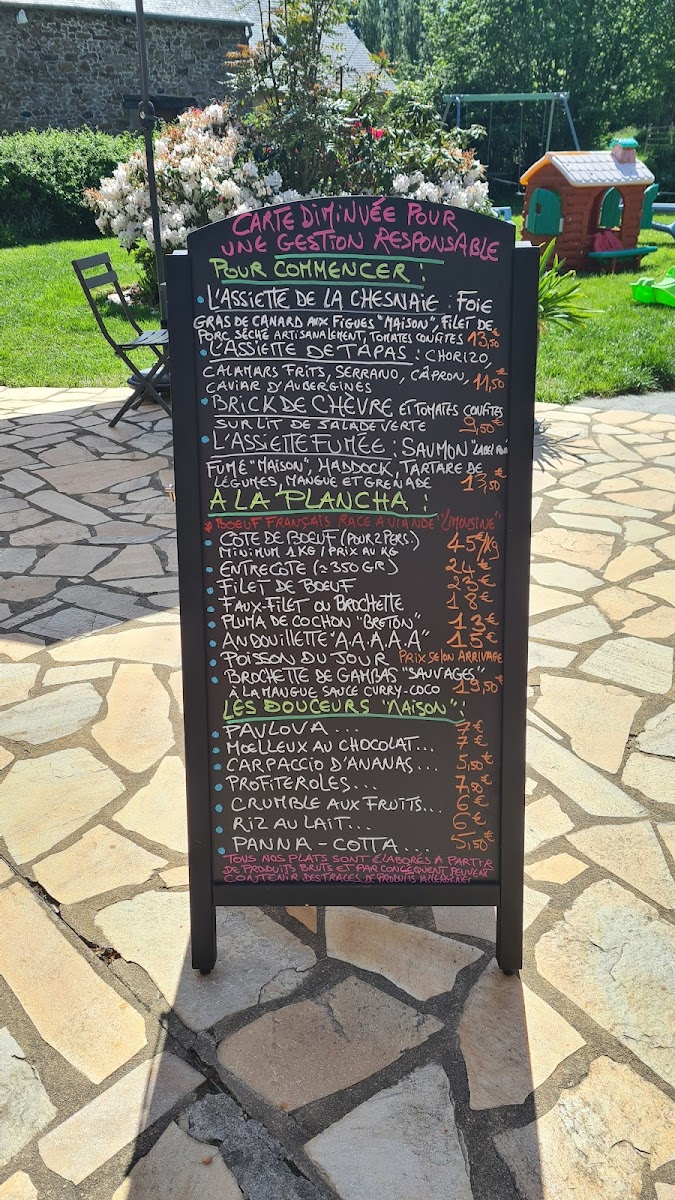 CARTE DIMINUÉE POUR
UNE GESTION RESPONSABLE
POUR COMMENCER :
L'ASSIETTE DE LA CHESNAIE : FOIE
GRAS DE CANARD AUX FIGUES "MAISON", FILET DE
PORC SÉCHÉ ARTISANALEMENT, TOMATES CONFITES 13,50
L'ASSIETTE DE TAPAS : CHORIZO,
CALAMARS FRITS, SERRANO, CÂPRON,
CAVIAR D'AUBERGINES 11,50
BRICK DE CHÈVRE ET TOMATES CONFITES
SUR LIT DE SALADE VERTE 9,50
L'ASSIETTE FUMÉE : SAUMON "LABEL
FUMÉ "MAISON", HADDOCK, TARTARE DE
LÉGUMES, MANGUE ET GRENADE 13,50
A LA PLANCHA :
BOEUF FRANÇAIS RACE A VIANDE "LIMOUSINE"
CÔTE DE BOEUF (POUR 2 PERS.)
MINIMUM 1KG / PRIX AU KG 45€/KG
ENTRECÔTE (± 350 GR) 24€
FILET DE BOEUF 23€
FAUX-FILET OU BROCHETTE 18€
PLUMA DE COCHON "BRETON" 13€
ANDOUILLETTE "A.A.A.A.A" 15€
POISSON DU JOUR PRIX SELON ARRIVAGE
BROCHETTE DE GAMBAS "SAUVAGES"
À LA MANGUE SAUCE CURRY-COCO 19,50€
LES DOUCEURS "MAISON" :
PAVLOVA... 7€
MOELLEUX AU CHOCOLAT... 7€
CARPACCIO D'ANANAS... 5,50€
PROFITEROLES... 7,50€
CRUMBLE AUX FRUITS... 6€
RIZ AU LAIT... 6€
PANNA-COTTA.... 5,50€
TOUS NOS PLATS SONT ÉLABORÉS À PARTIR
DE PRODUITS BRUTS ET PAR CONSÉQUENT PEUVENT
CONTENIR DES TRACES DE PRODUITS ALLERGÈNES